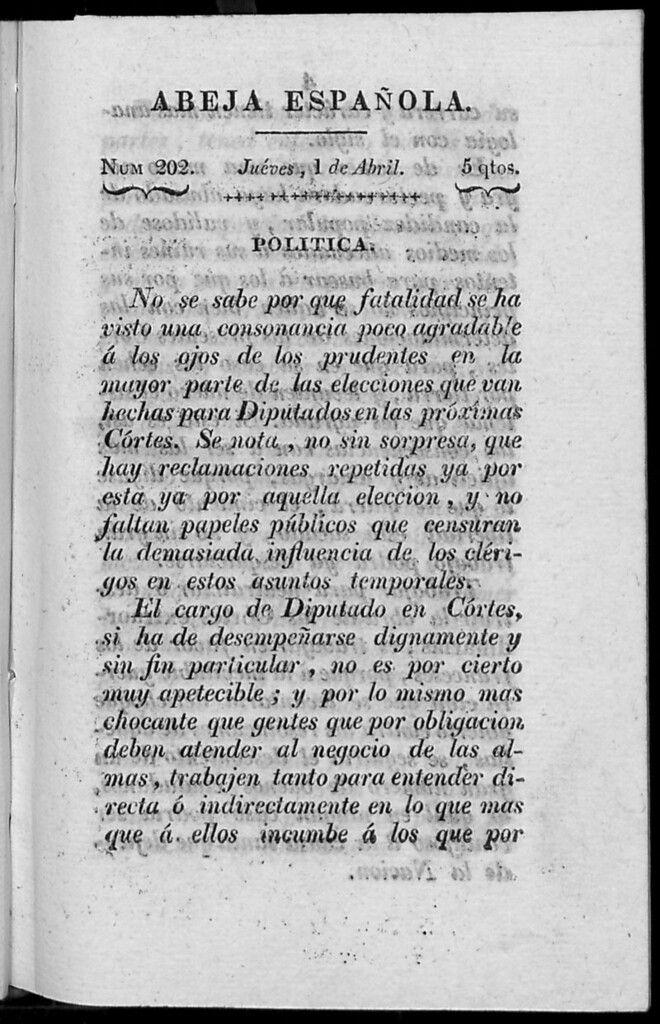 ABEJA ESPAÑOLA.
NUM 202. Juéves, 1 de Abril. 5 qtos.
POLITICA.
No se sabe por que fatalidad se ha
visto una consonancia poco agradable
á los ojos de los prudentes en la
mayor parte de las elecciones que van
hechas para Diputados en las próximas
Córtes. Se nota, no sin sorpresa, que
hay reclamaciones repetidas ya por
esta ya por aquella eleccion, y no
faltan papeles públicos que censuran
la demasiada influencia de los cléri-
gos en estos asuntos temporales.
El cargo de Diputado en Córtes,
si ha de desempeñarse dignamente y
sin fin particular, no es por cierto
muy apetecible; y por lo mismo mas
chocante que gentes que por obligacion
deben atender al negocio de las al-
mas, trabajen tanto para entender di-
recta ó indirectamente en lo que mas
que á ellos incumbe á los que por